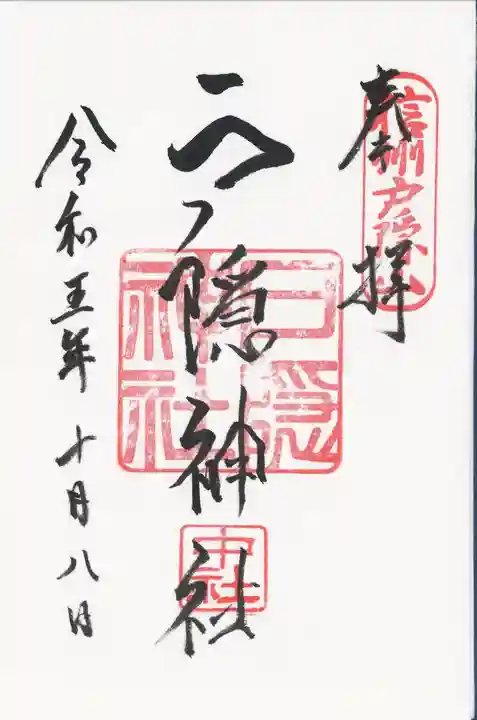 奉拝
信州戸隠山
戸隠神社
戸ノ隠神社
中社
令和五年十月八日